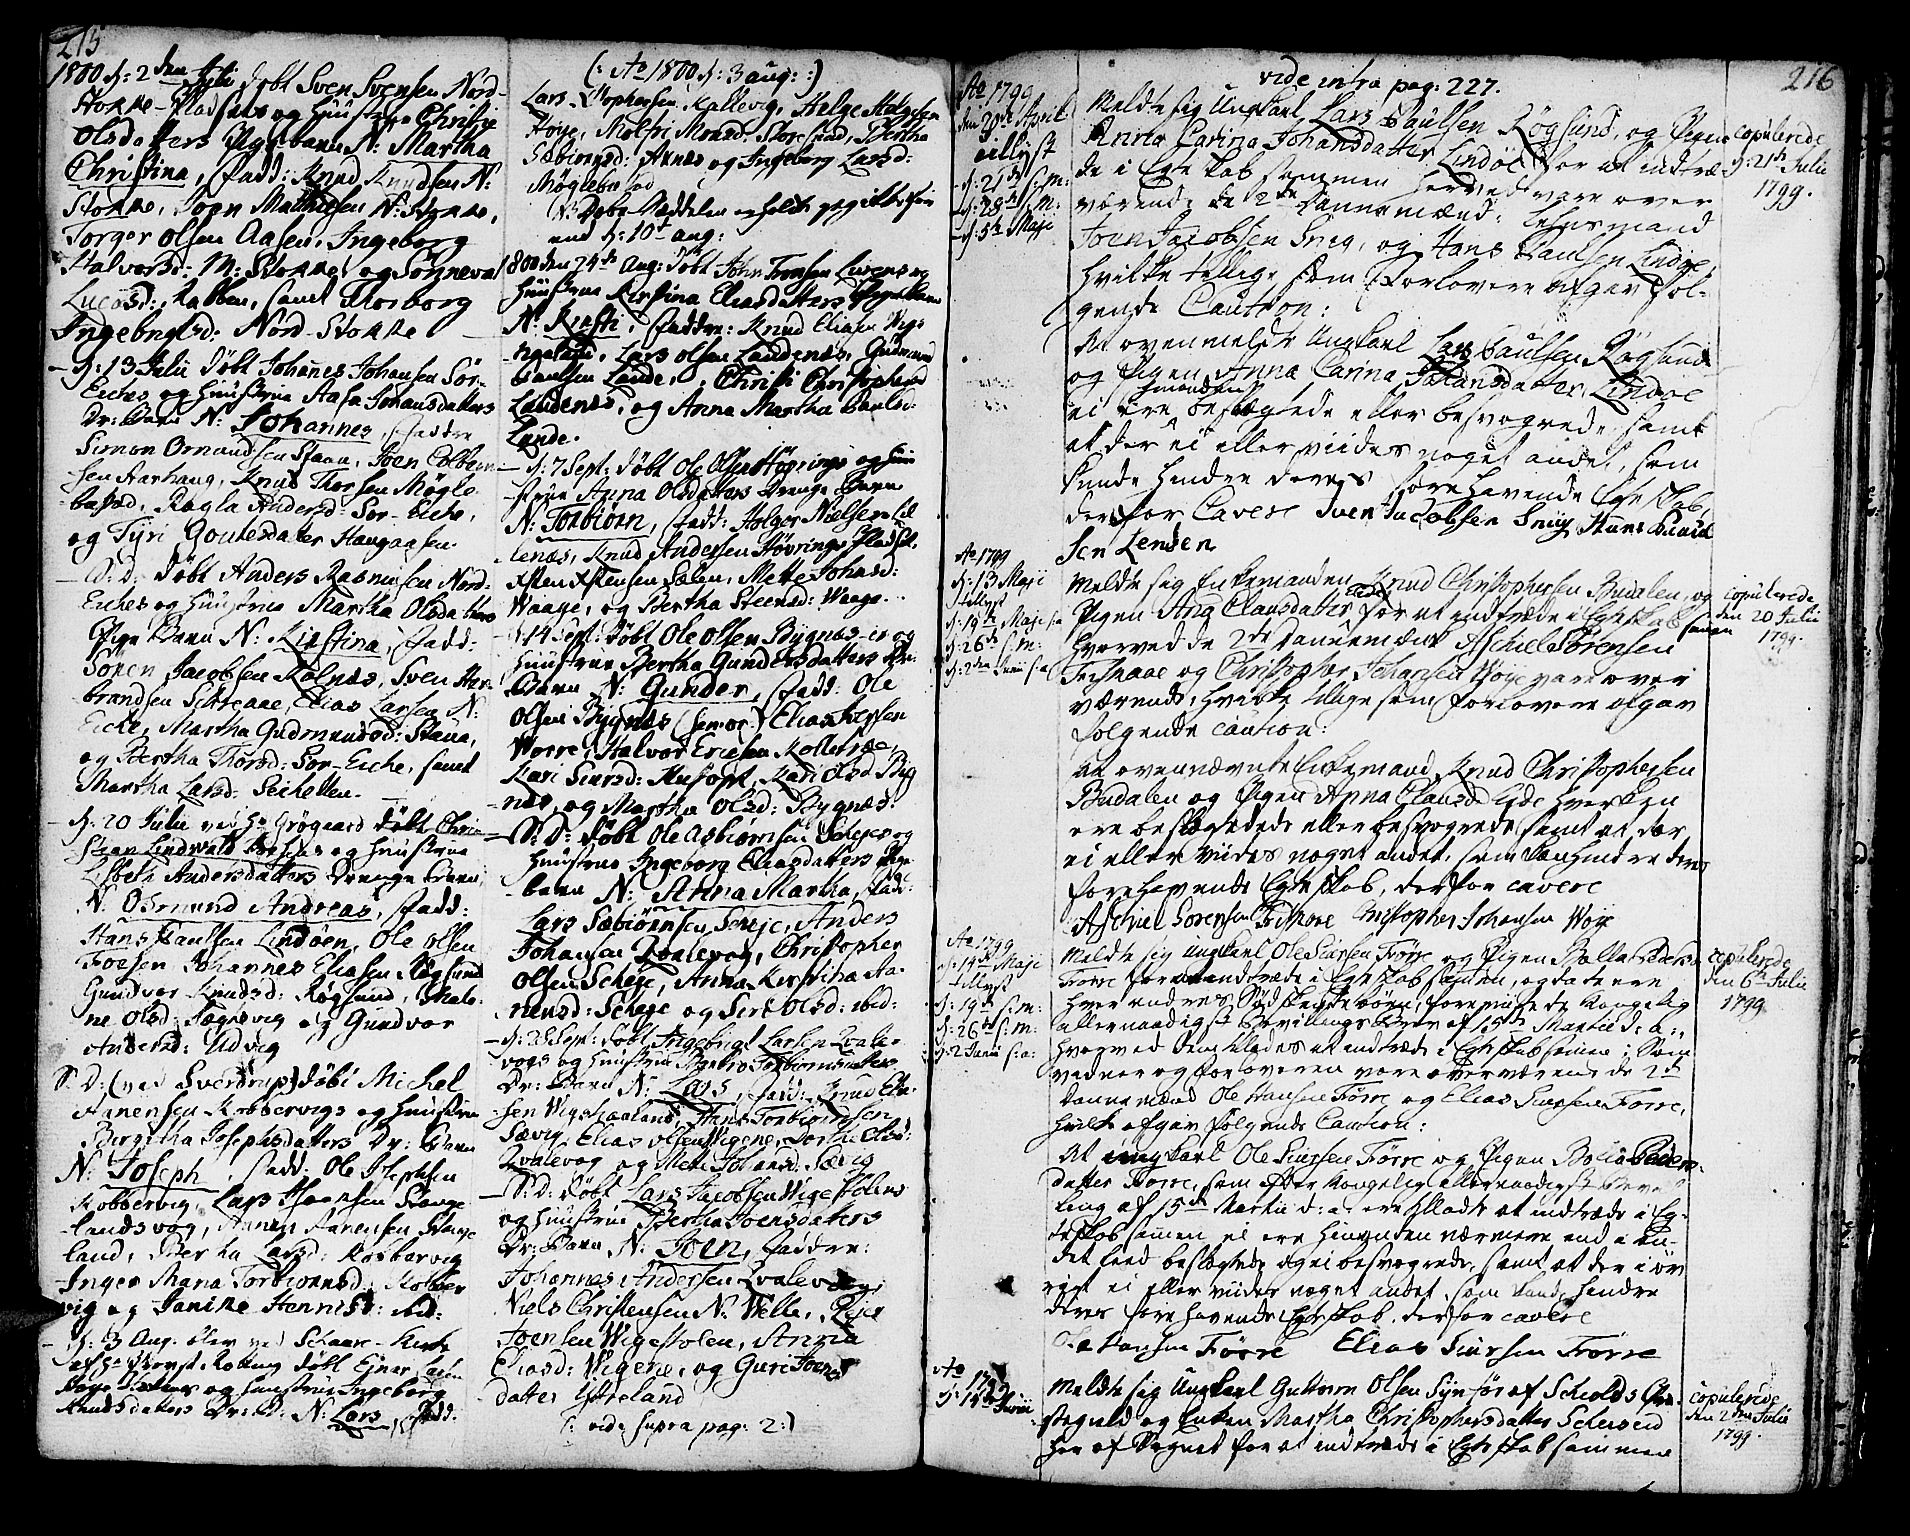 215
1800 d: 2den Julii døbt Sven Svensen Nord-
Stokke-Pladsens og Huustrue Christi
Olsdatters Pigebarn N: Martha
Christina, Fadd: Knud Knudsen N:
Stokke, Joen Mathiesen N: Stokke,
Torger Olsen Aasen, Ingeborg
Halvorsd: M: Stokke, og Sønneva
Lucasd: Rabben, samt Thorborg
Ingebrigtsd: Nord-Stokke
d: 13 Julii døbt Johanes Johansen Sør-
Eiches og Huustrue Aasa Johansdatters
Dr: Barn N: Johannes, Faddre
Simon Ormundsen Stava, Joen Colbein-
sen Aarhaug, Knud Thorsen Møgle-
bested, Ragla Andersd: Sør-Eiche,
og Tyri Goutesdatter Haugaasen.
S: D: døbt Anders Rasmussen Nord-
Eiches og Huustrue Martha Olsdatters
Pige Barn N: Kirstina, Fadd:
Sören Jacobsen Kolnæs, Sven Her-
brandsen, Elias Larsen N:
Eiche, Martha Gudmundsd: Stava,
og Bertha Thorsd: Sør-Eiche, samt
Martha Larsd:
d: 20 Julii ved Hr Grøgaard døbt Chri-
stian Lindwald og Huustrue
Lisbeth Andersdatters Drenge Barn
N: Osmund Andreas, Fadd:
Hans Paulsen Lindøen, Ole Olsen
Foesen, Johannes Eliasen Røgsund
Gundvor Knudsd: Røgsund, Male-
ne Olsd: Fognevig og Gundvor
Andersd: Udvig
S: D: (ved Sverdrup) døbt Michel
Aanensen Kobbervigs og Huustrue
Birgitha Josephsdatters Dr: Barn
N: Joseph, Fadd: Ole Josephsen
Kobbervig, Lars Stange-
landsvog, Aanen Aanensen Stange
land, Bertha Larsd: Kobbervig
Inger Maria Torbiörnsd: Kobber
vig og Janike Henricsd: ibid:
d: 3 Aug. blev ved Schaare-Kirke
af Hr Provst døbt Ejner
og Huustrue Ingeborg
Knudsdatters Dr: B: N: Lars, Fadd:
(: Ao 1800 d: 3 aug: :)
Lars Christophersen Kallevig, Helge Helgesen
Høye, Molfri Monsd: Storesund, Bertha
Sæbiörnsd: Aknes og Ingeborg Larsd:
Møglebosted
N: Døbe-Seddelen erholdte jeg ikke før
end d: 10de aug:
1800 den 24de Aug: døbt John Tronsen
Huustrue Kirstina Eliasdatters Pigebarn
N: Kirsti, Faddre: Knud Eliasen
Lars Olsen Landenæs, Gudmund
Paulsen Lande, Christi Christophersd
Landenæs, og Anna Martha Paulsd:
Lande.
d: 7 Sept: døbt Ole Olsen Høvrings og Huu-
strue Anna Olsdatters Drenge Barn
N: Torbiörn, Fadd: Holger Nielsen
Knud Andersen Høvrings Pladset,
Sten Stensen Salen, Mette Johasd:
Waage, og Bertha Steensd: Waage.
d: 14 Sept: døbt Ole Olsen Bygnæs-es og
Huustrue Bertha Gundersdatters Dr:
Barn N: Gunder, Fadd: Ole
Olsen Bygnæs (senior) Elias Iversen
Worre, Halvor Ericsen Kolletræe,
Kari Siursd: Husøen, Kari Olsd Byg
næs og Martha Olsd: Bygnæs:
S: D: døbt Ole Asbiörnsen Scheies og
Huustrue Ingeborg Eliasdatters Pige
barn N: Anna Martha, Fadd:
Lars Sæbiörnsen Scheje, Anders
Johansen Qvalevog, Christopher
Olsen Scheje, Anna Kirstina Aa-
nensd: Scheje og Siri Olsd: ibid:
d: 28 Sept: døbt Ingebrigt Larsen Qvale-
vogs og Huustrue Torbiörnsdatters
Dr: Barn N: Lars, Fadd: Knud Elia-
sen Wigshaaland, Arne Torbiörnsen
Sævig, Elias Olsen Wigene, Dorthe Olsd:
Qvalevog og Mette Johansd: Sævig
S: D: døbt Lars Jacobsen Wigestolens
og Huustrue Bertha Joensdatters
Dr: Barn N: Joen, Faddre:
Johannes Andersen Qvalevog,
Niels Christensen N: Welle, Peder
Joensen Wigestolen, Anna
Eliasd: Wigene, og Guri Joens
datter Ystreland
(: vide supra pag: 2:)
216
vide infra pag: 227.
Ao 1799
den 20de April
tillyst
d: 21de s: m:
d: 28de s: m:
d: 5te Maji
Meldte sig Ungkarl Lars Paulsen Røgsund, og Pigen
Anna Carina Johansdatter Lindøe for at indtræ-
de i Egteskab sammen, herved vare over
værende de 2de Dannemænd: Lehnsmand
Joen Jacobsen Snig, og Hans Paulsen Lindøe,
hvilke tillige som Forlovere afgav føl-
gende Caution:
At ovenmeldte Ungkarl Lars Paulsen Røgsund
og Pigen Anna Carina Johansdatter Lindøe
hinanden
ei ere beslægtede eller besvogrede samt
at der ei eller viides noget andet, som
kunde hindre deres forehavende Egteskab,
derfor Cavere Sven Jacobsen Snig Hans Pauel
Sen Lensen
copulerede
d: 21de Julii
1799.
Ao 1799
d: 13 Maji
tillyst
d: 19de Maji s: a
d: 26de s: m:
d: 2den Junii s: a
Meldte sig Enkemanden Knud Christophersen Budalen, og
Pigen Ana Clausdatter Eide for at indtræde i Egteskab
sammen
hvorved de 2de Dannemænd Aschiel Sørensen
Feskaae og Christopher Johansen Høye vare over
værende, hvilke tillige som Forlovere afgav
følgende caution:
At ovennævnte Enkemand Knud Christophersen
Budalen og Pigen Anna Clausd: Eide hverken
ere beslægtede eller besvogrede, samt at der
ei eller viides noget andet, som kan hindre deres
forehavende Egteskab, derfor cavere
Aschiel Sørensen Christopher Johansen Høye
copulerede
den 20 Julii
1799.
Ao 1799
d: 14de Maji
tillyst
d: 19de s: m:
d: 26de s: m:
d: 2 Junii s: a:
Meldte sig Ungkarl Ole Siursen Førre og Pigen Bolla Pedersd
Førre for at indtræde i Egteskab sammen, og da de ere
hverandres Sødskendebörn, foreviiste de Kongelig
allernaadigst Bevillings Brev af 15de Martii d: a:,
hvorved dem tillades at indtræde i Egteskab sammen; Som
vedner og Forlovere vare overværende de 2de
Dannemænd Ole Hansen Førre og Elias Siursen Førre,
hvilke afgav følgende Caution:
At Ungkarl Ole Siursen Førre og Pigen Bolla Peders-
datter Førre, som efter Kongelig allernaadigst Bevil-
ling af 15de Martii d: a: ere tilladte at indtræde i Eg-
teskab sammen, ei ere hinanden nærmere end i an-
det Leed beslægtede og ei besvogrede, samt at der i øv
rigt ei eller viides noget andet, som kand hindre
deres forehavende Egteskab, derfor cavere
Ole Hansen Førre Elias Siursen Førre
copulerede
den 6te Julii
1799
Ao 1799
d: 14de Junii
Meldte sig Ungkarl Guttorm Olsen Synfør af Schiolds Præ-
stegield og Enken Martha Christophersdatter
her af Sognet for at indtræde i Egteskab sammen
copulerede
den 2den Julii
1799.